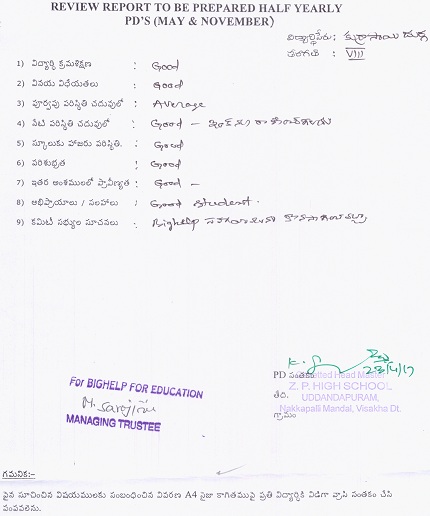 REVIEW REPORT TO BE PREPARED HALF YEARLY
PD'S (MAY & NOVEMBER)
విద్యార్థిపేరు:
తరగతి : VIII
1) విద్యార్థి క్రమశిక్షణ : Good
2) విషయ విధేయతలు : Good
3) పూర్వపు పరిస్థితి చదువులో : Average
4) నేటి పరిస్థితి చదువులో : Good -
5) స్కూలుకు హాజరు పరిస్థితి. : Good
6) పరిశుభ్రత : Good
7) ఇతర అంశములలో ప్రావీణ్యత : Good -
8) అభిప్రాయాలు / సలహాలు : Good student.
9) కమిటీ సభ్యుల సూచనలు : Bighelp
For BIGHELP FOR EDUCATION
M. Sarojini
MANAGING TRUSTEE
PD సంతకం Head Master
Z. P. HIGH SCHOOL
తేది. UDDANDAPURAM,
Nakkapalli Mandal, Visakha Dt.
గ్రామం
గమనిక:-
పైన సూచించిన విషయములకు సంబంధించిన వివరణ A4 సైజు కాగితముపై ప్రతి విద్యార్థికి విడిగా వ్రాసి సంతకం చేసి
పంపవలెను.